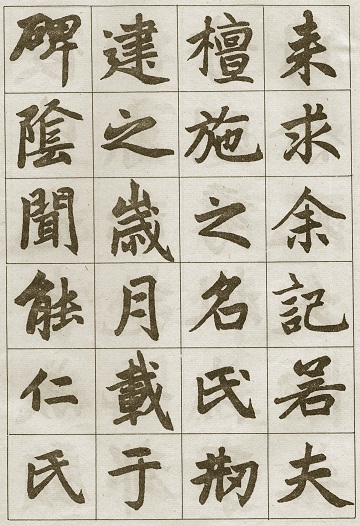 来求余記若夫
檀施之名氏刱
建之嵗月載于
碑陰聞能仁氏